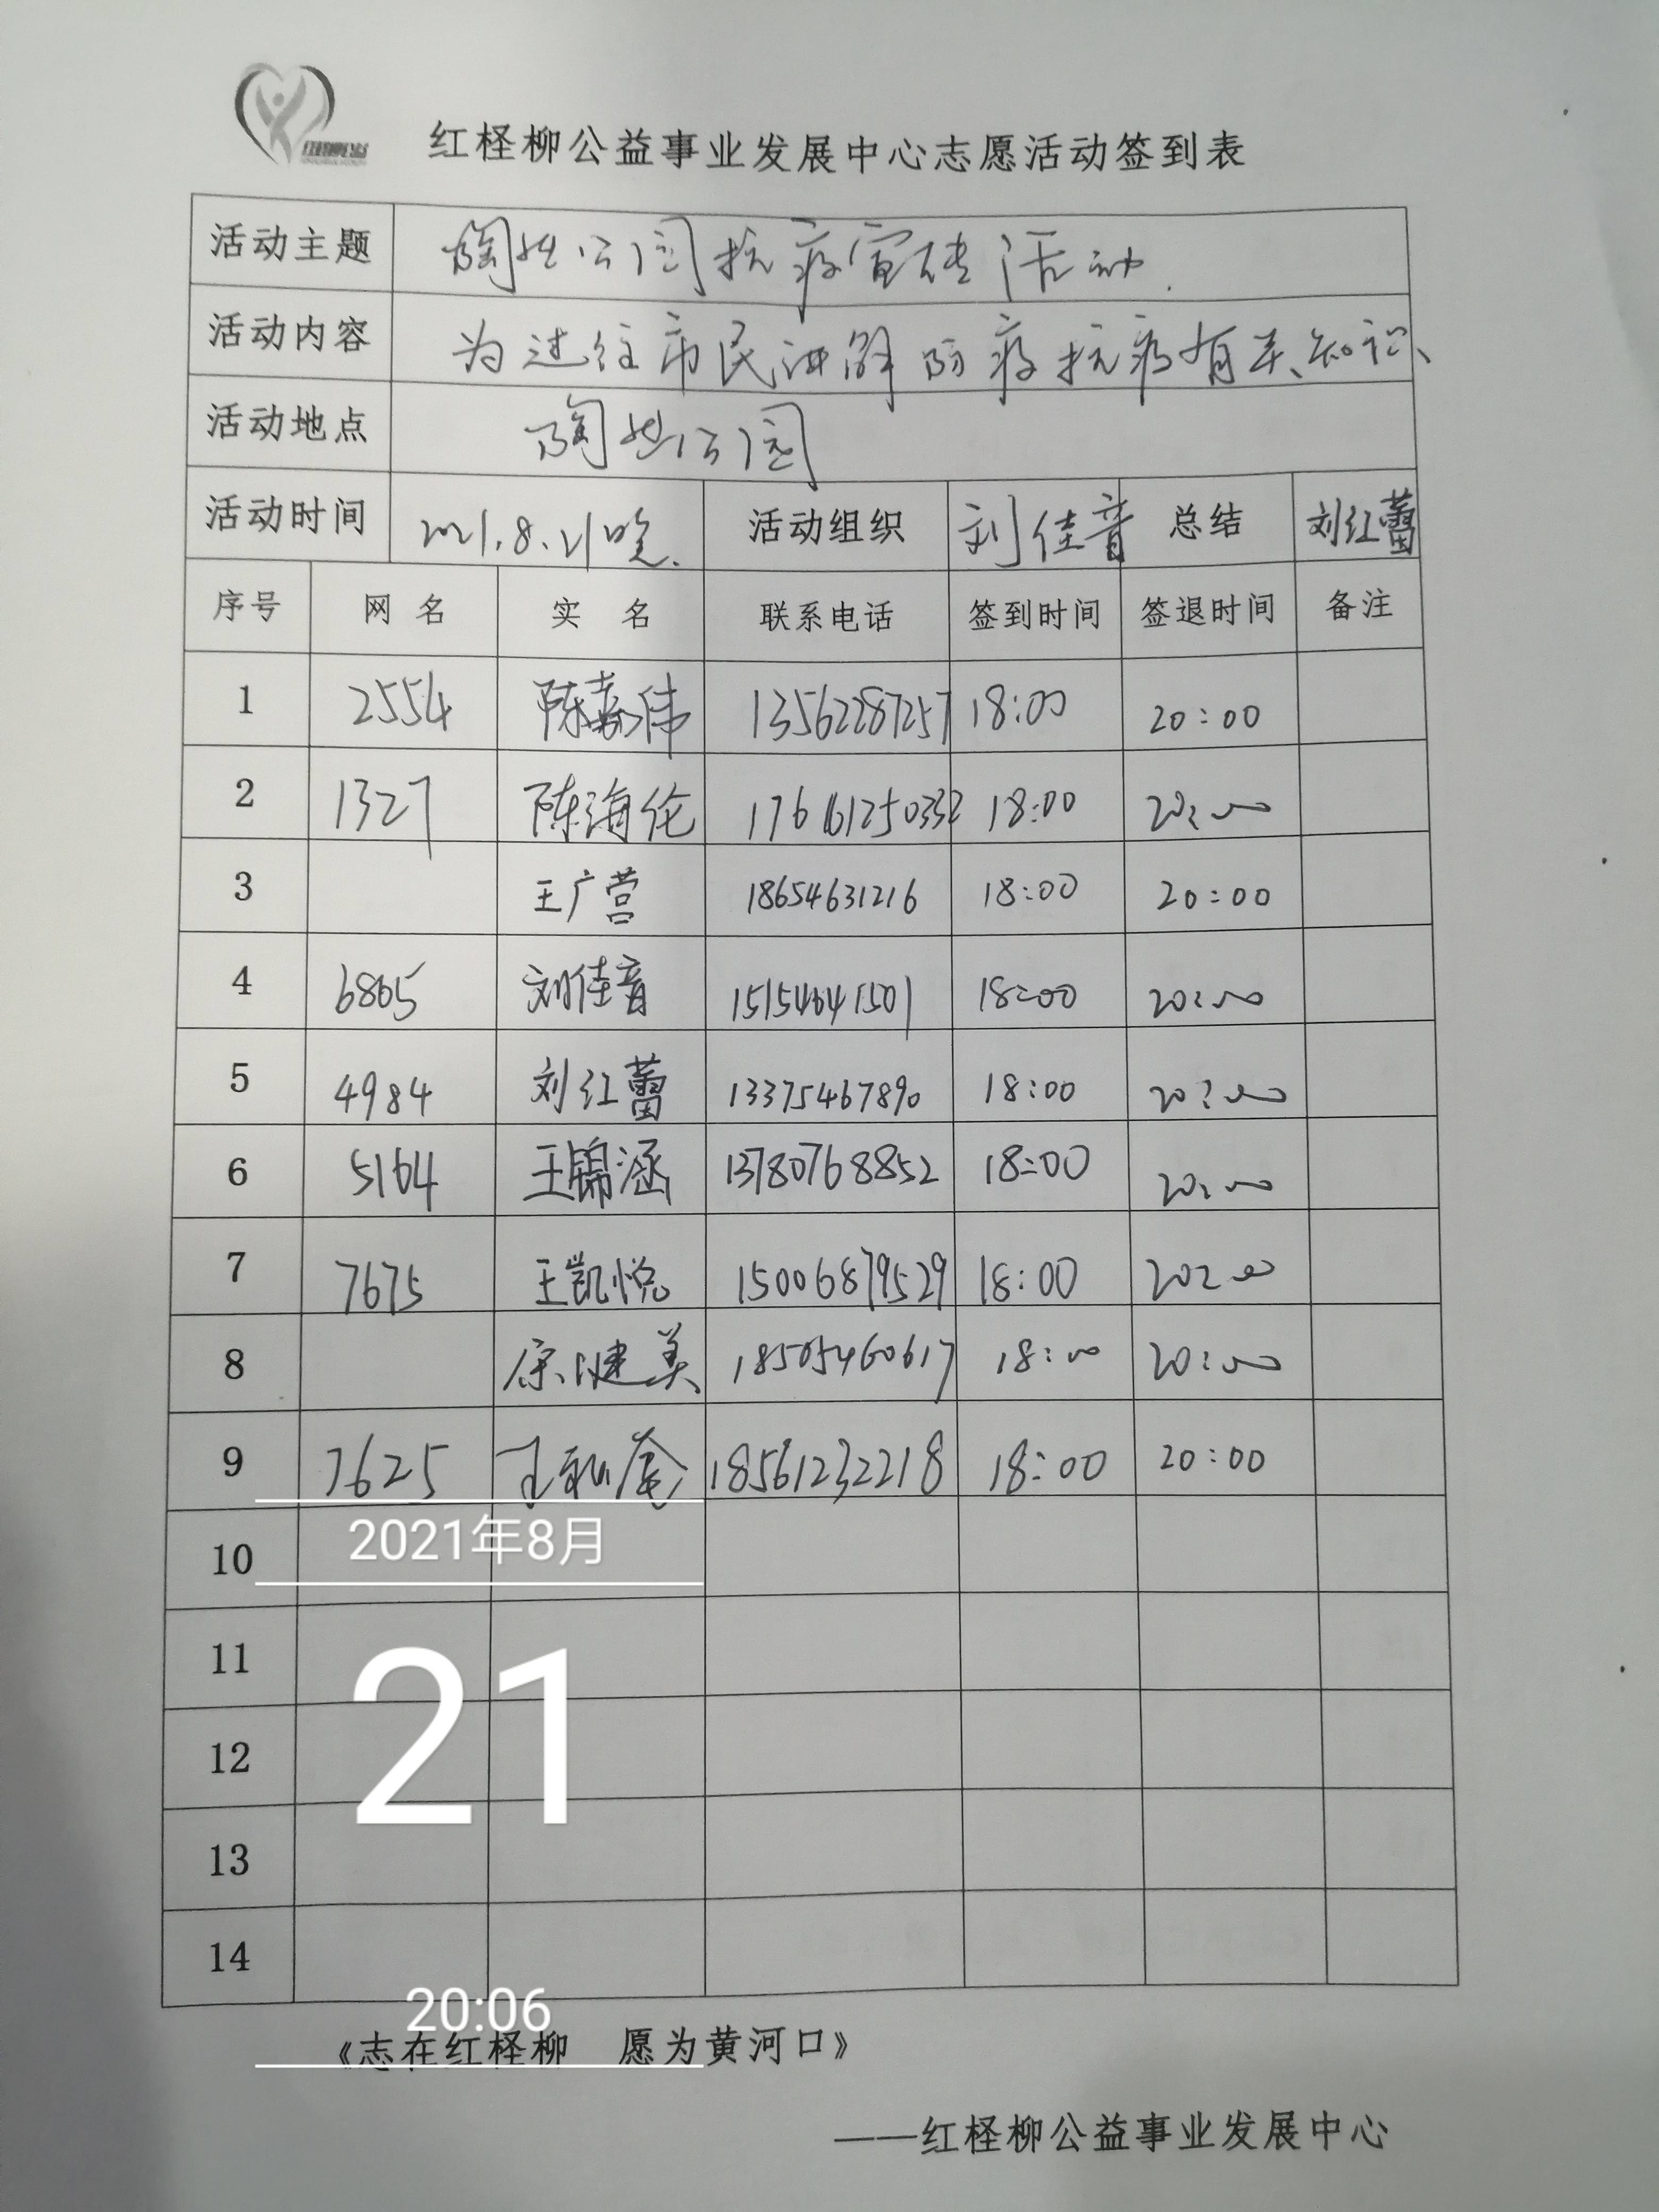 红柽柳公益事业发展中心志愿活动签到表
活动主题 陶然公园抗疫宣传活动.
活动内容 为过往市民讲解防疫抗疫有关知识、
活动地点 陶然公园
活动时间 2021.8.21晚. 活动组织 刘佳音 总结 刘红蕾
序号 网名 实名 联系电话 签到时间 签退时间 备注
1 2554 陈嘉伟 13562287257 18:00 20:00
2 1327 陈海伦 17661250332 18:00 20:00
3 王广营 18654631216 18:00 20:00
4 6865 刘佳音 15154641501 18:00 20:00
5 4984 刘红蕾 13375467890 18:00 20:00
6 5164 王锦涵 13780768852 18:00 20:00
7 7675 王凯悦 15006879529 18:00 20:00
8 健美 18505460617 18:00 20:00
9 7625 王 18561232218 18:00 20:00
10
2021年8月
11
21
12
13
14
20:06
《志在红柽柳 愿为黄河口》
——红柽柳公益事业发展中心